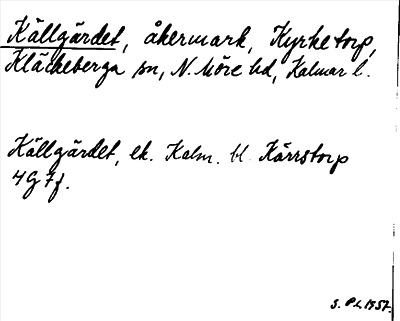 Källgärdet, åkermark, Kyrketorp,
Kläckeberga sn, N. Möre hd, Kalmar l.
Källgärdet, ek. Kalm. bl. Kärrstorp
4G 7f.
S. P L 1957.